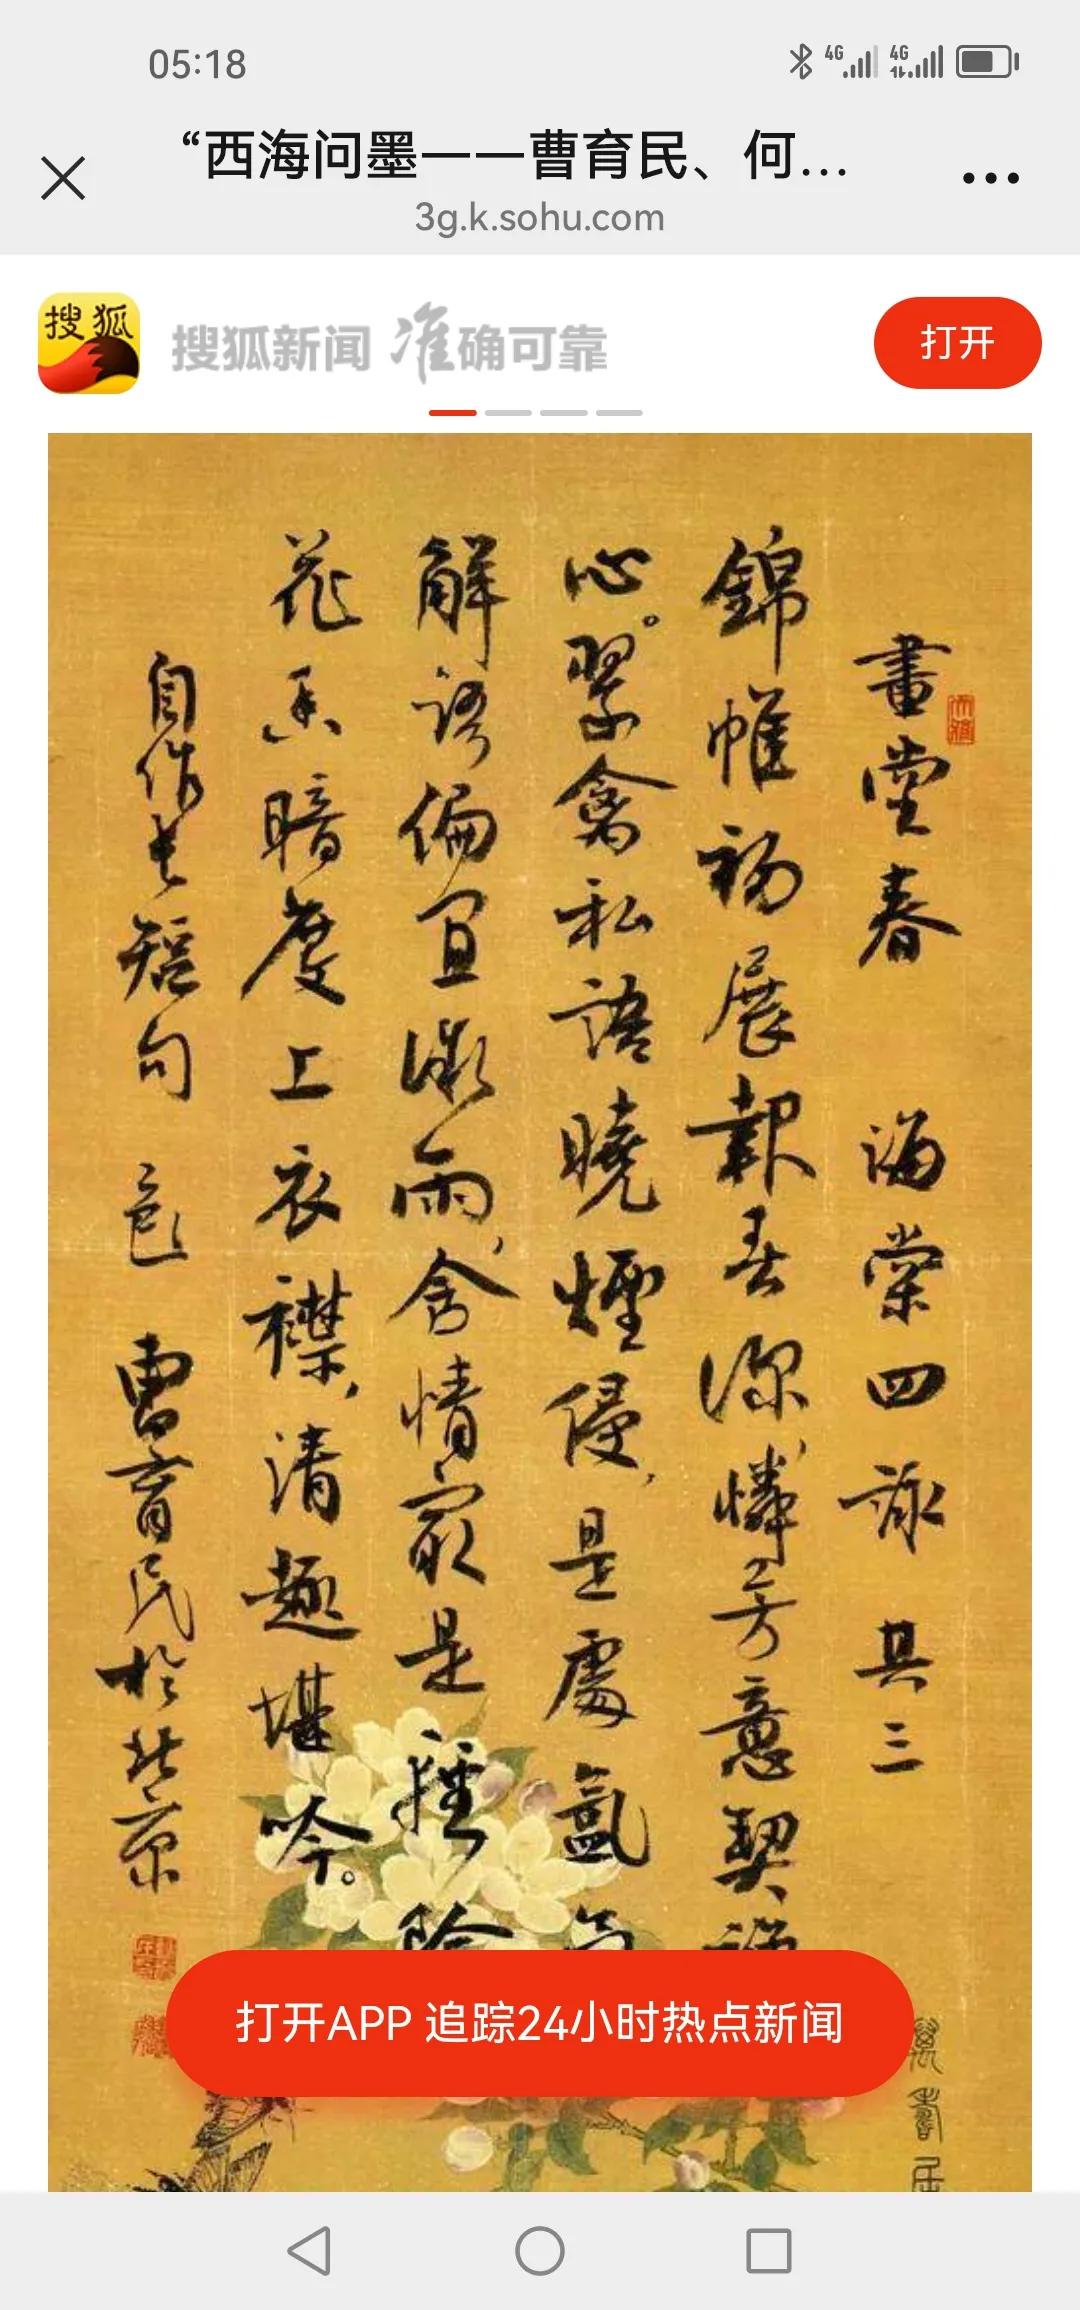 05:18
4G 4G
“西海问墨一一曹育民、何...
3g.k.sohu.com
搜狐
搜狐新闻 准确可靠
打开
畫堂春 海棠四詠 其三
錦帷初展報春深，憐芳意契禪
心。翠禽私語曉煙侵，是處氤氳
解語偏宜微雨，含情最是輕陰
花香暗度上衣襟，清趣堪吟。
自作長短句 曹育民於北京
打开APP 追踪24小时热点新闻